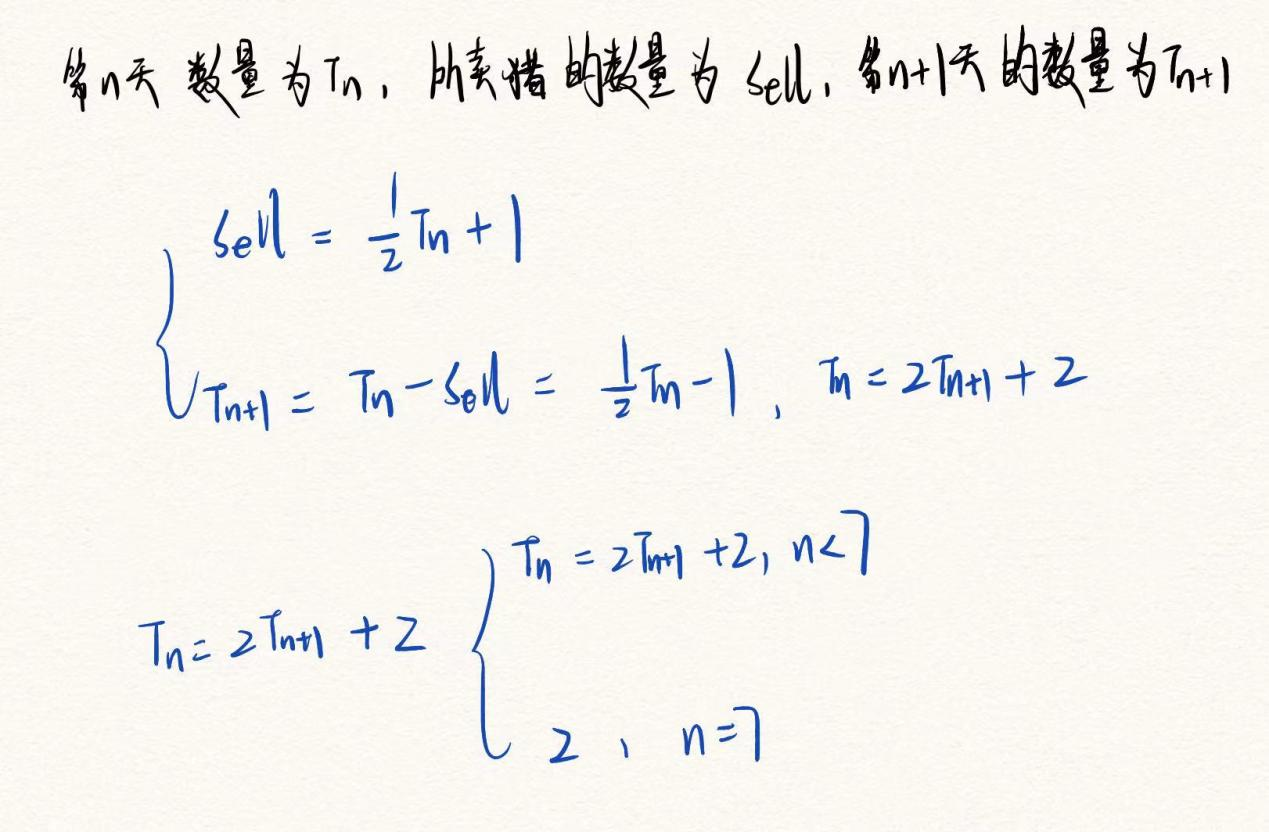 第n天 数量为Tn, 所卖猪的数量为 sell, 第n+1天的数量为Tn+1
sell = 1/2 Tn + 1
Tn+1 = Tn - sell = 1/2 Tn - 1, Tn = 2Tn+1 + 2
Tn = 2Tn+1 + 2, n<7
Tn = 2Tn+1 + 2
2, n=7